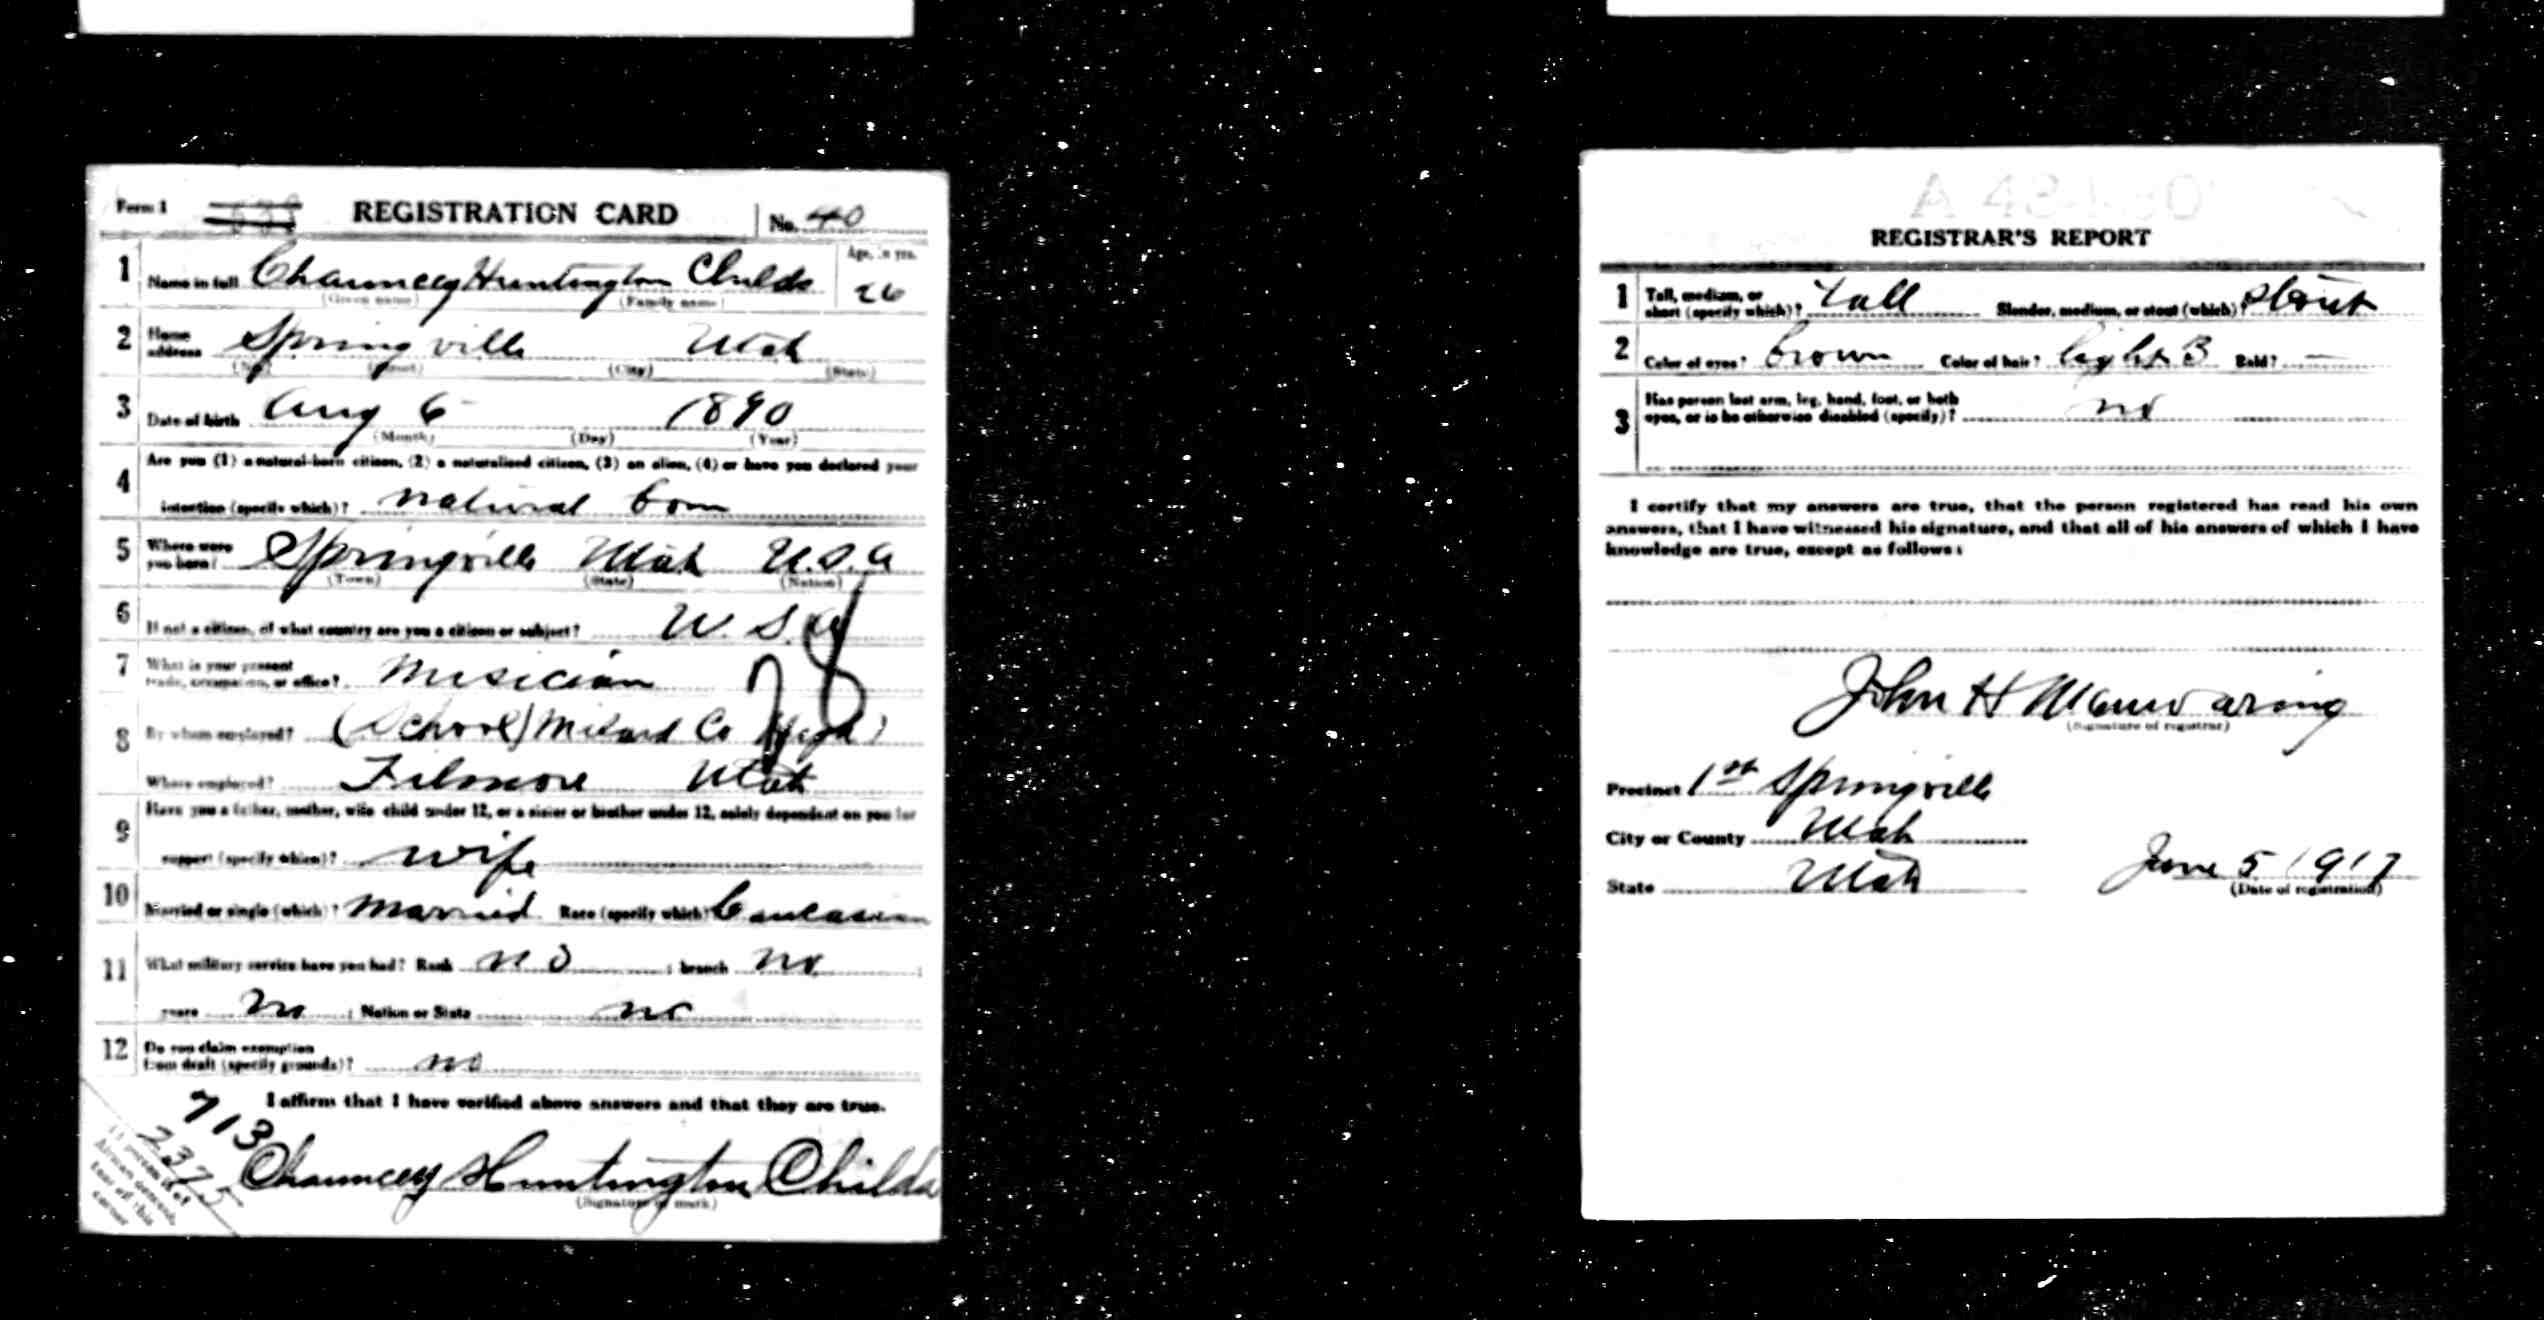 Form 1 REGISTRATION CARD No. 40
1 Name in full Chauncey Huntington Childs Age, in yrs. 26
(Given name) (Family name)
2 Home address Springville Utah
(No.) (Street) (City) (State)
3 Date of birth Aug 6 1890
(Month) (Day) (Year)
4 Are you (1) a natural-born citizen, (2) a naturalized citizen, (3) an alien, (4) or have you declared your
intention (specify which)? natural born
5 Where were you born? Springville Utah U.S.A
(Town) (State) (Nation)
6 If not a citizen, of what country are you a citizen or subject? U.S.A
7 What is your present trade, occupation, or office? Musician 28
8 By whom employed? (School) Milard Co High)
Where employed? Filmore Utah
9 Have you a father, mother, wife child under 12, or a sister or brother under 12, solely dependent on you for
support (specify which)? wife
10 Married or single (which)? Married Race (specify which)? Caucasian
11 What military service have you had? Rank no ; branch no ;
years no ; Nation or State no
12 Do you claim exemption from draft (specify grounds)? no
I affirm that I have verified above answers and that they are true.
713
2375
Chauncey Huntington Childs
(Signature or mark)
If person is of
African descent,
tear off this
corner
REGISTRAR'S REPORT
1 Tall, medium, or short (specify which)? Tall Slender, medium, or stout (which)? Stout
2 Color of eyes? Brown Color of hair? light B Bald? —
3 Has person lost arm, leg, hand, foot, or both
eyes, or is he otherwise disabled (specify)? no
I certify that my answers are true, that the person registered has read his own
answers, that I have witnessed his signature, and that all of his answers of which I have
knowledge are true, except as follows:
John H Manwaring
(Signature of registrar)
Precinct 1st Springville
City or County Utah
State Utah June 5 1917
(Date of registration)